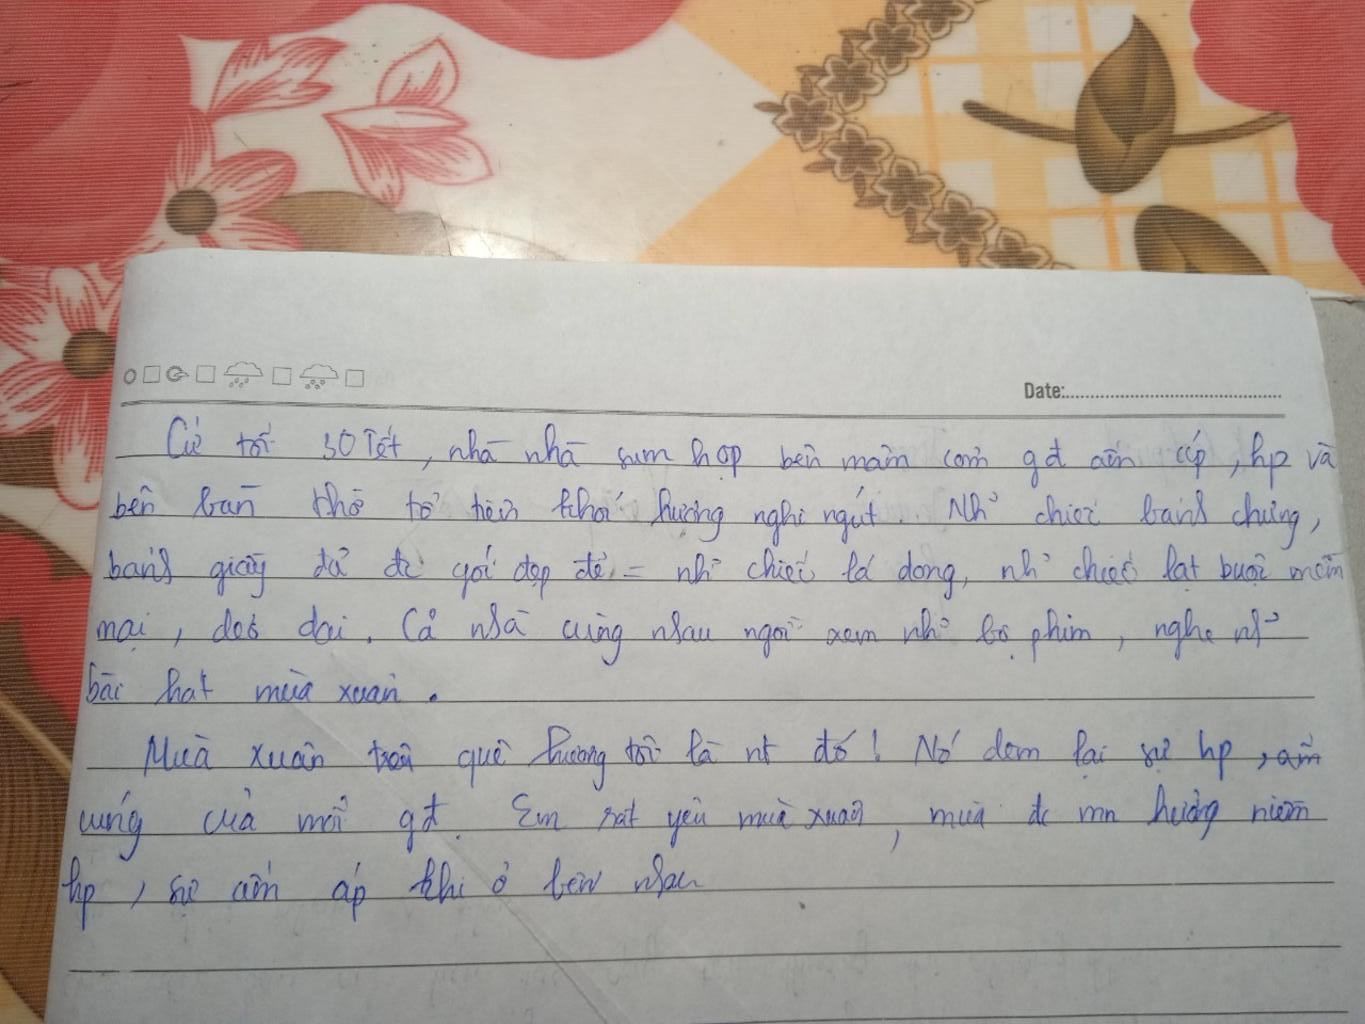 Date:
Cứ tối 30 Tết, nhà nhà sum họp bên mâm cơm gđ ấm cúp, hp và
bên bàn thờ tổ tiên khói hương nghi ngút. Nh~ chiếc bánh chưng,
bánh giầy đã đc gói đẹp đẽ = nh~ chiếc lá dong, nh~ chiếc lạt buộc mềm
mại, dẻo dai. Cả nhà cùng nhau ngồi xem nh~ bộ phim, nghe nh~
bài hát mùa xuân.
Mùa xuân trên quê hương tôi là nt đó! Nó đem lại sự hp, ấm
cúng của mỗi gđ. Em rất yêu mùa xuân, mùa đc mn hưởng niềm
hp, sự ấm áp khi ở bên nhau